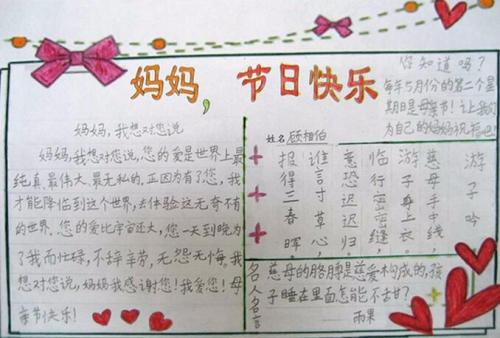 妈妈，节日快乐
你知道吗？
每年5月份的第二个星
期日是母亲节！让我们
为自己的妈妈祝福吧
妈妈，我想对您说
妈妈，我想对您说，您的爱是世界上最
纯真、最伟大、最无私的，正因为有了您，我
才能降临到这个世界，去体验这无奇不有
的世界，您的爱比宇宙还大，您一天到晚为
了我而忙碌，不辞辛劳，无怨无悔，我
想对您说，妈妈我感谢您！我爱您！母
亲节快乐！
姓名 顾相伯
游子吟
慈母手中线，
游子身上衣。
临行密密缝，
意恐迟迟归。
谁言寸草心，
报得三春晖。
名人名言
慈母的胳膊是慈爱构成的，孩
子睡在里面怎能不甘甜？
雨果